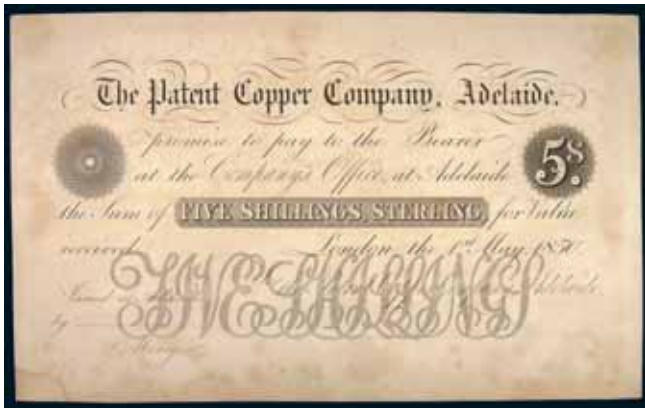 The Patent Copper Company, Adelaide.
promise to pay to the Bearer
at the Company's Office, at Adelaide
5s.
the Sum of FIVE SHILLINGS, STERLING, for Value
received. London, the 1st May, 1850
FIVE SHILLINGS
Adelaide.
by